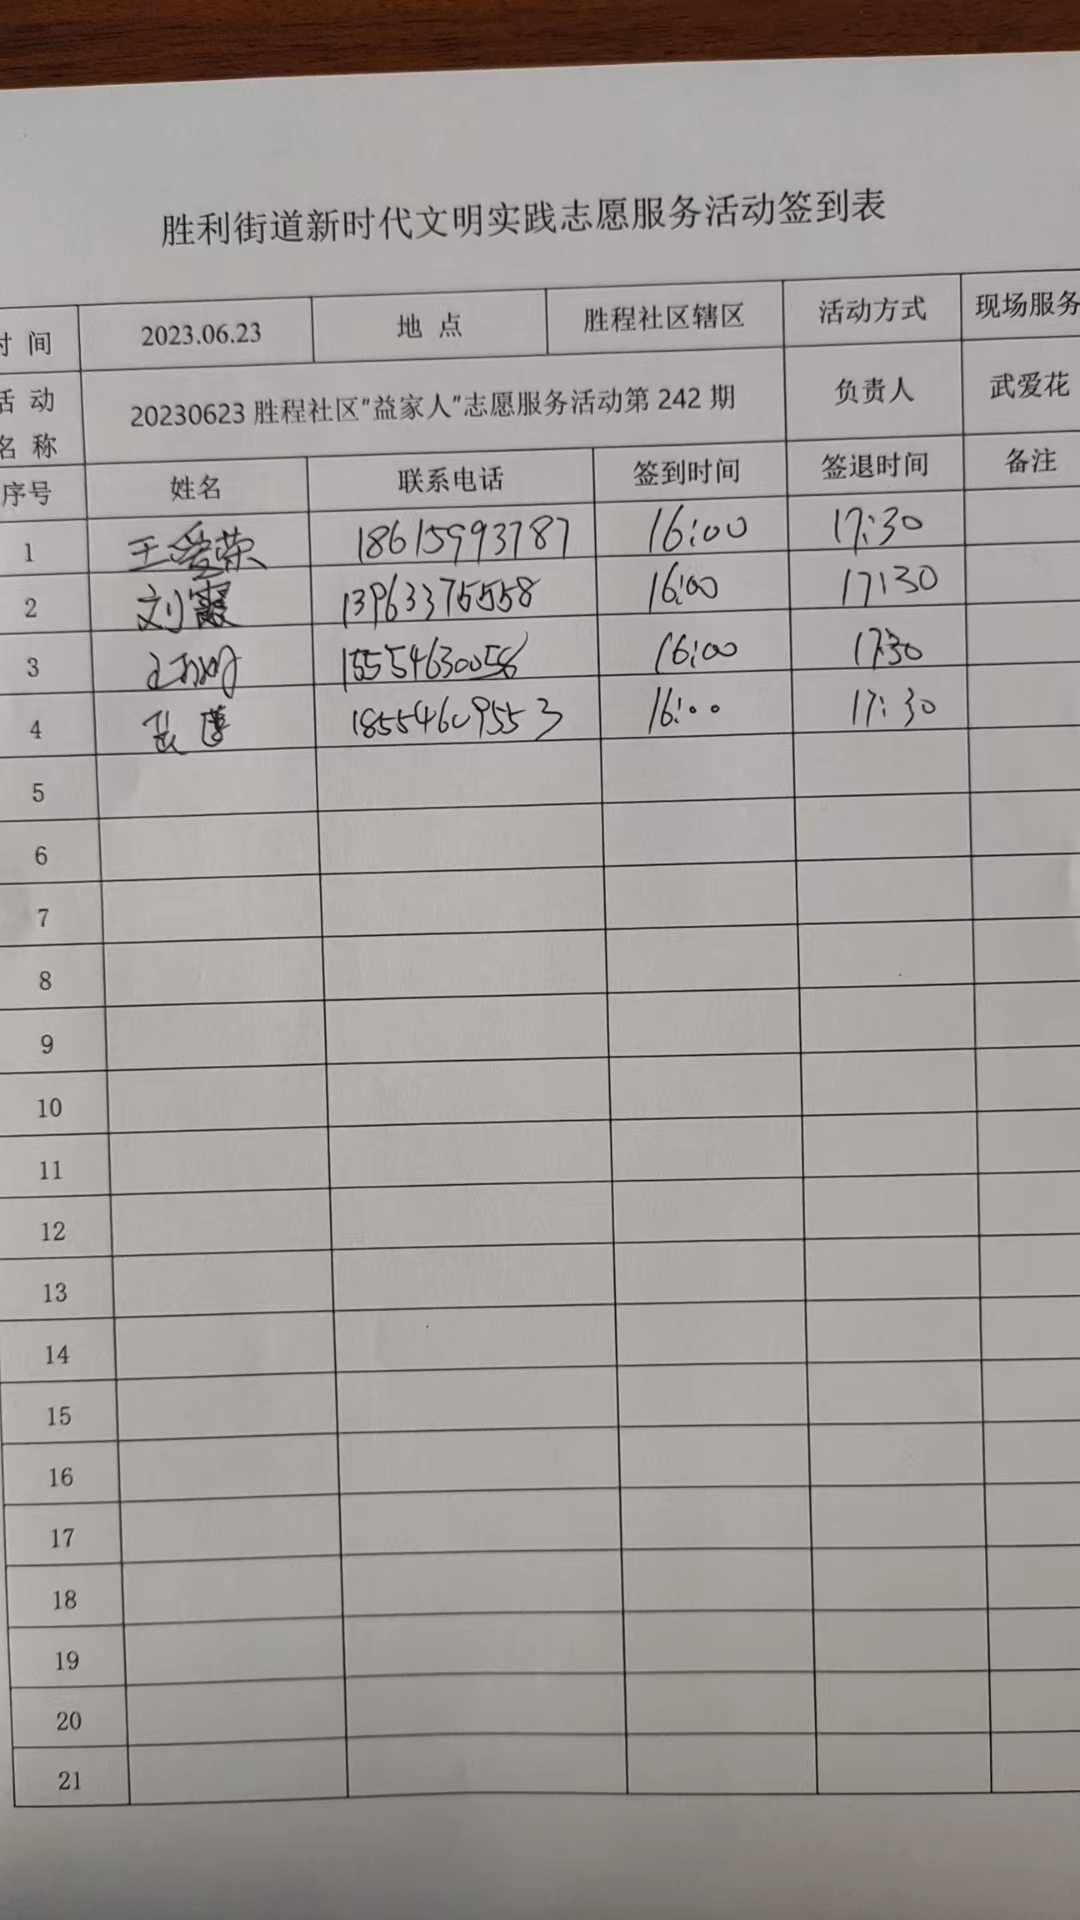 胜利街道新时代文明实践志愿服务活动签到表
时 间 2023.06.23 地 点 胜程社区辖区 活动方式 现场服务
活 动 名 称 20230623 胜程社区"益家人"志愿服务活动第 242 期 负责人 武爱花
序号 姓名 联系电话 签到时间 签退时间 备注
1 王爱荣 18615993787 16:00 17:30
2 刘霞 13963375558 16:00 17:30
3 15554630058 16:00 17:30
4 18554609553 16:00 17:30
5
6
7
8
9
10
11
12
13
14
15
16
17
18
19
20
21